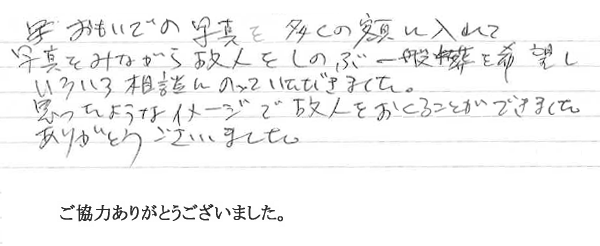 おもいでの写真を多くの額に入れて
写真をみながら故人をしのぶ一般葬を希望し
いろいろ相談にのっていただきました。
思ったようなイメージで故人をおくることができました
ありがとうございました。
ご協力ありがとうございました。